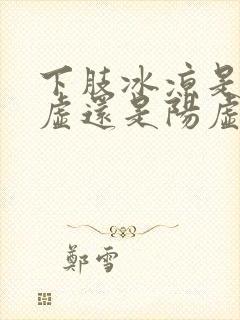 下肢冰涼是
虛還是陽虛
鄭雪